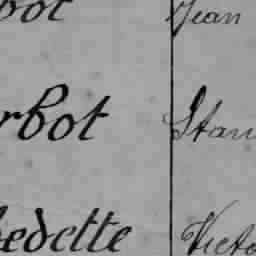 bot Jean
rbot Stan
bedette Victo